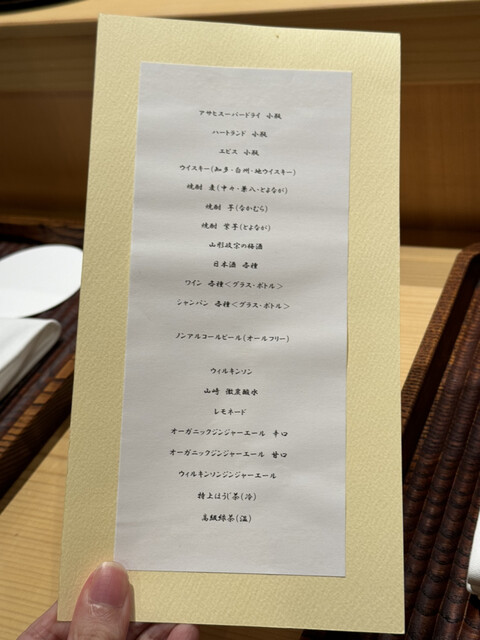 アサヒスーパードライ 小瓶
ハートランド 小瓶
エビス 小瓶
ウイスキー(知多・白州・地ウイスキー)
焼酎 麦(中々・兼八・とよなが)
焼酎 芋(なかむら)
焼酎 紫芋(とよなが)
山形政宗の梅酒
日本酒 各種
ワイン 各種<グラス・ボトル>
シャンパン 各種<グラス・ボトル>
ノンアルコールビール(オールフリー)
ウィルキンソン
山崎 微炭酸水
レモネード
オーガニックジンジャーエール 辛口
オーガニックジンジャーエール 甘口
ウィルキンソンジンジャーエール
特上ほうじ茶(冷)
高級緑茶(温)